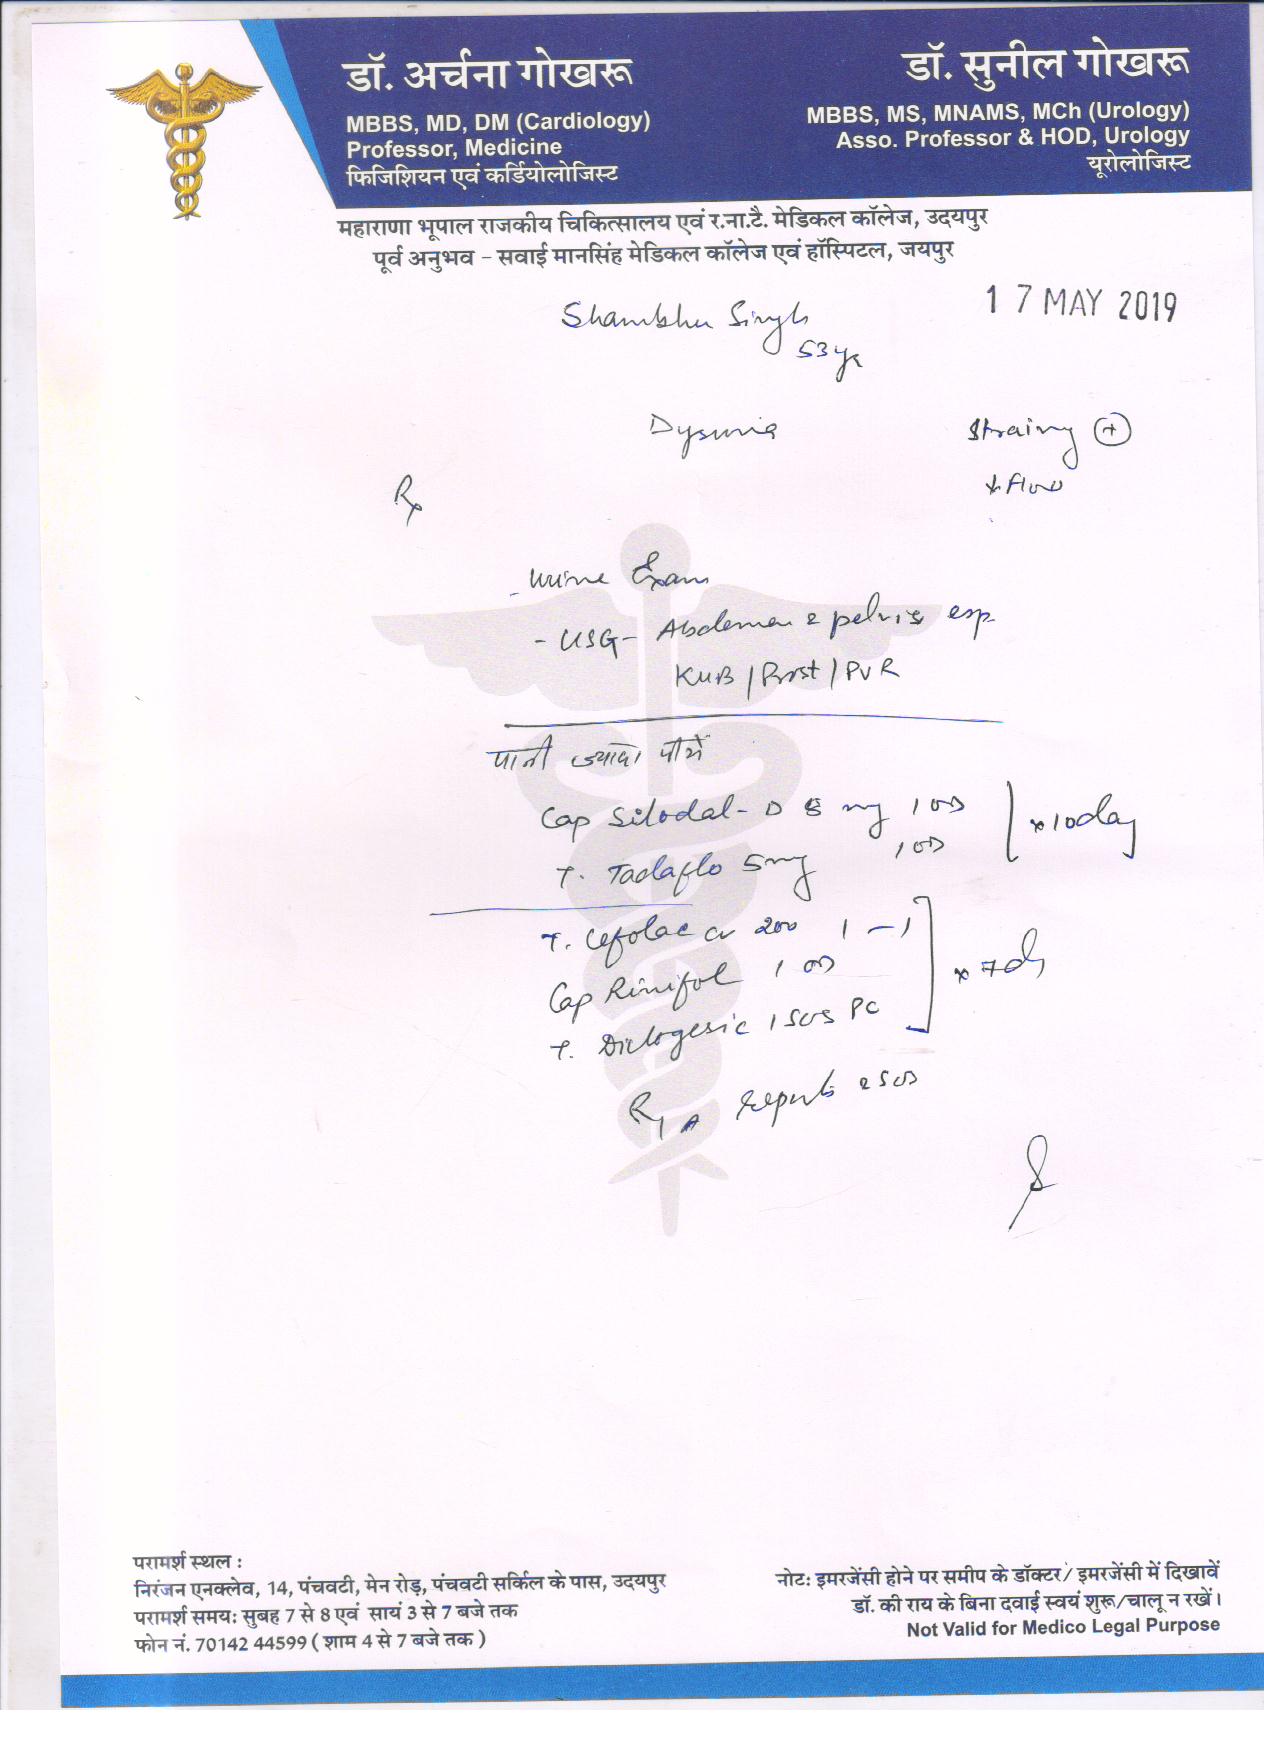 डॉ. अर्चना गोखरू
MBBS, MD, DM (Cardiology)
Professor, Medicine
फिजिशियन एवं कर्डियोलोजिस्ट
डॉ. सुनील गोखरू
MBBS, MS, MNAMS, MCh (Urology)
Asso. Professor & HOD, Urology
यूरोलोजिस्ट
महाराणा भूपाल राजकीय चिकित्सालय एवं र.ना.टै. मेडिकल कॉलेज, उदयपुर
पूर्व अनुभव – सवाई मानसिंह मेडिकल कॉलेज एवं हॉस्पिटल, जयपुर
17 MAY 2019
Shambhu Singh
53 yr
Dysuria
Straining (+)
flow
Rx
- Urine Exam
- USG - Abdomen & pelvis esp
KUB / Prost / PVR
पानी ज्यादा पीयें
Cap Silodal - D 8 mg 1 OD
T. Tadaflo 5mg 1 OD
x 10 day
T. Cefolac cv 200 1 - 1
Cap Rinifol 1 OD
T. Diclogesic 1 SOS PC
x 7 d
R reports & SOS
परामर्श स्थल :
निरंजन एनक्लेव, 14, पंचवटी, मेन रोड़, पंचवटी सर्किल के पास, उदयपुर
परामर्श समय: सुबह 7 से 8 एवं सायं 3 से 7 बजे तक
फोन नं. 70142 44599 ( शाम 4 से 7 बजे तक )
नोट: इमरजेंसी होने पर समीप के डॉक्टर/ इमरजेंसी में दिखावें
डॉ. की राय के बिना दवाई स्वयं शुरू/चालू न रखें।
Not Valid for Medico Legal Purpose